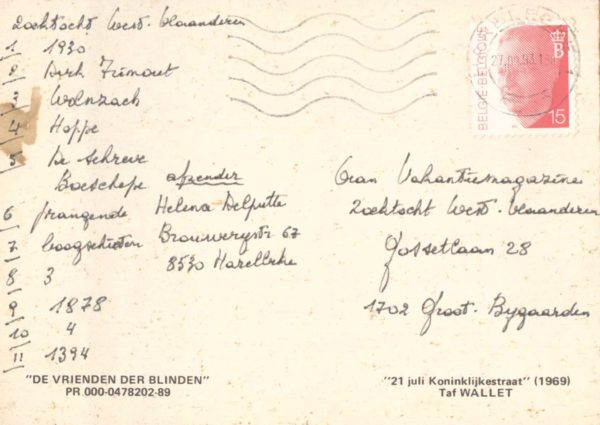 Zoektocht West-Vlaanderen
1 1930
2 Dirk Frimout
3 Wolnzach
4 Hoppe
5 De Schreve
Boeschepe
6 prangende
7 boogschieten
8 3
9 1878
10 4
11 1394
afzender
Helena Delputte
Brouwerystr 67
8530 Harelbeke
BELGIE BELGIQUE
B
15
Gran Vakantiemagazine
Zoektocht West-Vlaanderen
Gossetlaan 28
1702 Groot-Bygaarden
"DE VRIENDEN DER BLINDEN"
PR 000-0478202-89
"21 juli Koninklijkestraat" (1969)
Taf WALLET